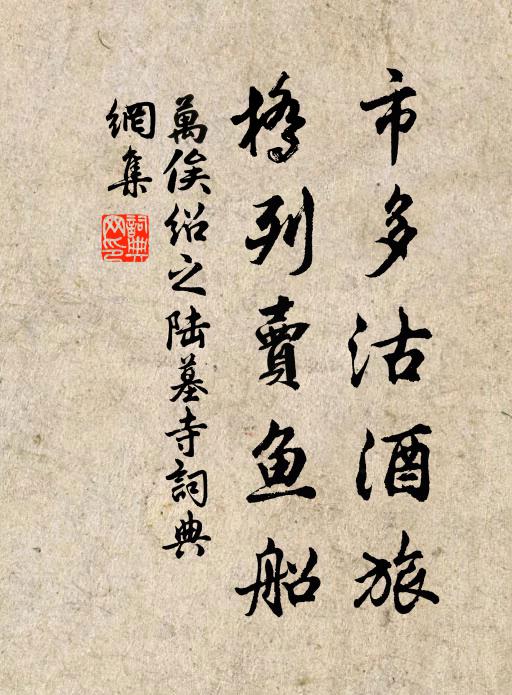 市多沽酒旅
橋列賣鱼船
萬俟绍之陆墓寺詞典
網集
詞典網印